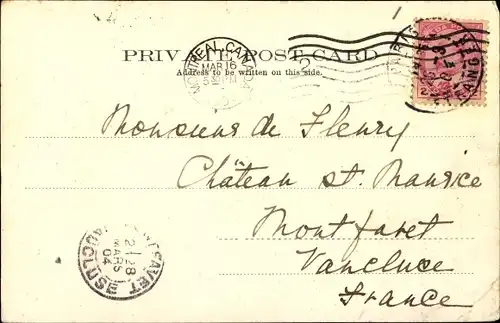 PRIVATE POST CARD
Address to be written on this side.
MONTREAL, CANADA
MAR 16
PARIS
ETRANGER
Monsieur de Fleury
Château St. Maurice
Montfavet
Vaucluse
France
MONTFAVET
28
MARS
04
VAUCLUSE